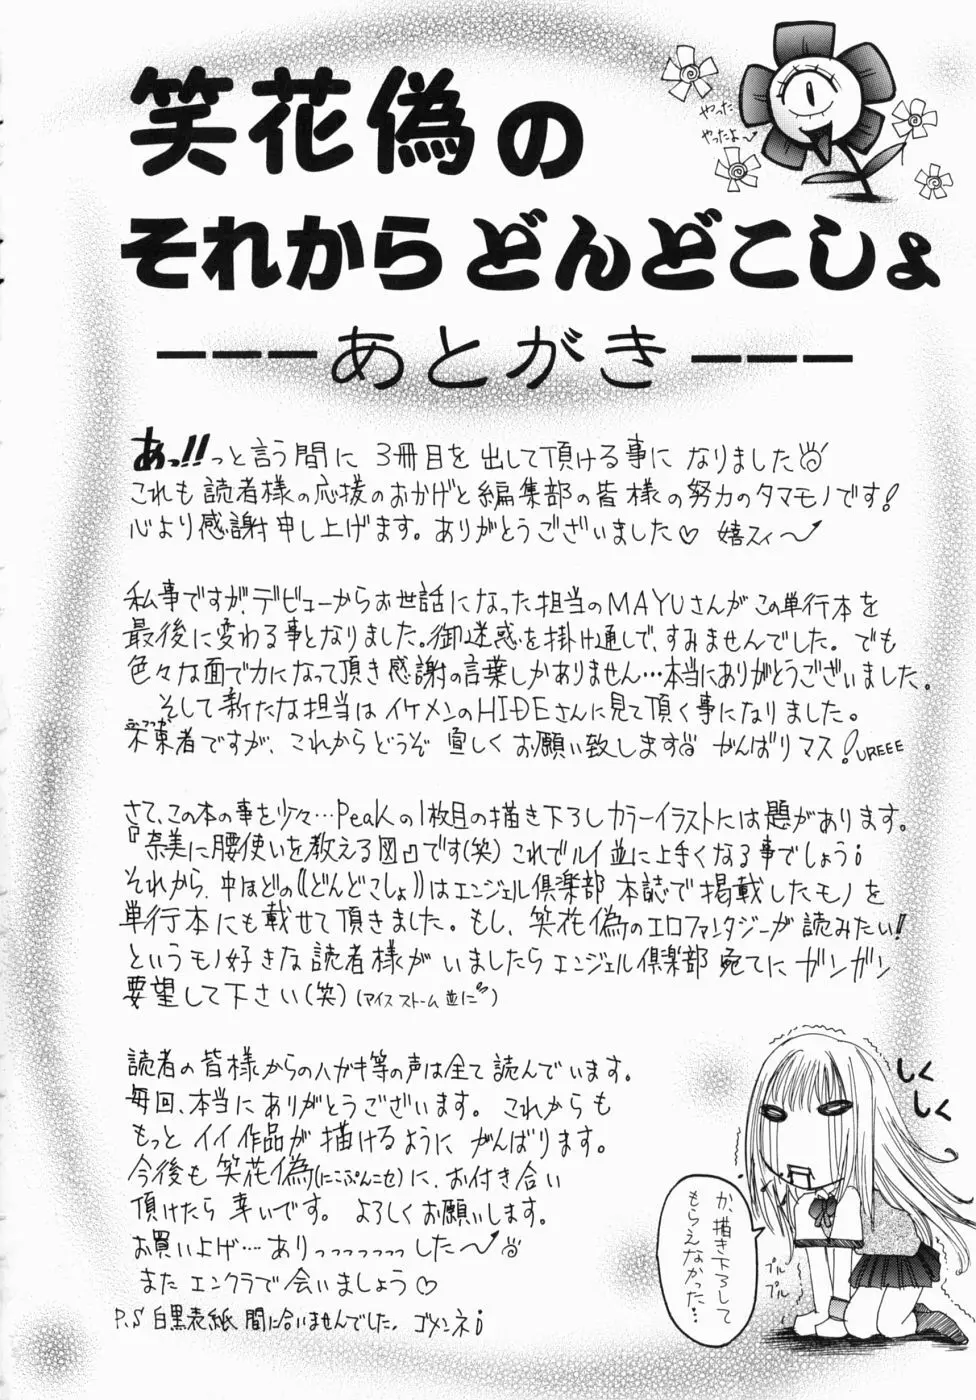 笑花偽の
それからどんどこしょ
やった
やったよ〜
---あとがき---
あっ!!っと言う間に 3冊目を出して頂ける事に なりました
これも読者様の応援のおかげと編集部の皆様の努力のタマモノです!
心より感謝申し上げます。ありがとうございました♡ 嬉スィ〜
私事ですが、デビューからお世話になった担当のMAYUさんがこの単行本を
最後に変わる事となりました。御迷惑を掛け通しで、すみませんでした。でも
色々な面で力になって頂き感謝の言葉しかありません…本当にありがとうございました。
そして新たな担当はイケメンのHIDEさんに見て頂く事になりました。
不束者ですが、これからどうぞ宜しくお願い致します がんばりマス!UREEE
さて、この本の事を少々…Peakの1枚目の描き下ろしカラーイラストには題があります。
『奈美に腰使いを教える図』です(笑)これでルイ並に上手くなる事でしょう!
それから、中ほどの《どんどこしょ》はエンジェル倶楽部本誌で掲載したモノを
単行本にも載せて頂きました。もし、笑花偽のエロファンタジーが読みたい!!
というモノ好きな読者様がいましたらエンジェル倶楽部宛てにガンガン
要望して下さい(笑)(アイスストーム並に")
読者の皆様からのハガキ等の声は全て読んでいます。
毎回、本当にありがとうございます。これからも
もっとイイ作品が描けるようにがんばります。
今後も笑花偽(にこぷんニセ)に、お付き合い
頂けたら幸いです。よろしくお願いします。
お買い上げ…ありっっっっっっした〜
またエンクラで会いましょう♡
P.S 白黒表紙間に合いませんでした。ゴメンネ!
しく
しく
か、描き下ろして
もらえなかった…
プル
プル